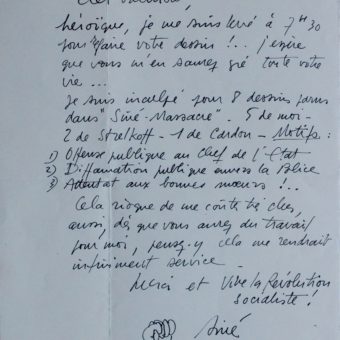 héroïque, je me suis levé à 7H30
pour faire votre dessin !.. j'espère
que vous m'en saurez gré toute votre
vie...
Je suis inculpé pour 8 dessins parus
dans "Siné-Massacre". 5 de moi -
2 de Strelkoff - 1 de Cardon - Motifs :
1) Offense publique au Chef de l'État
2) Diffamation publique envers la Police
3) Attentat aux bonnes moeurs !..
Cela risque de me coûter cher,
aussi, dès que vous aurez du travail
pour moi, pensez-y cela me rendrait
infiniment service -
Merci et Vive la Révolution
socialiste !
Siné